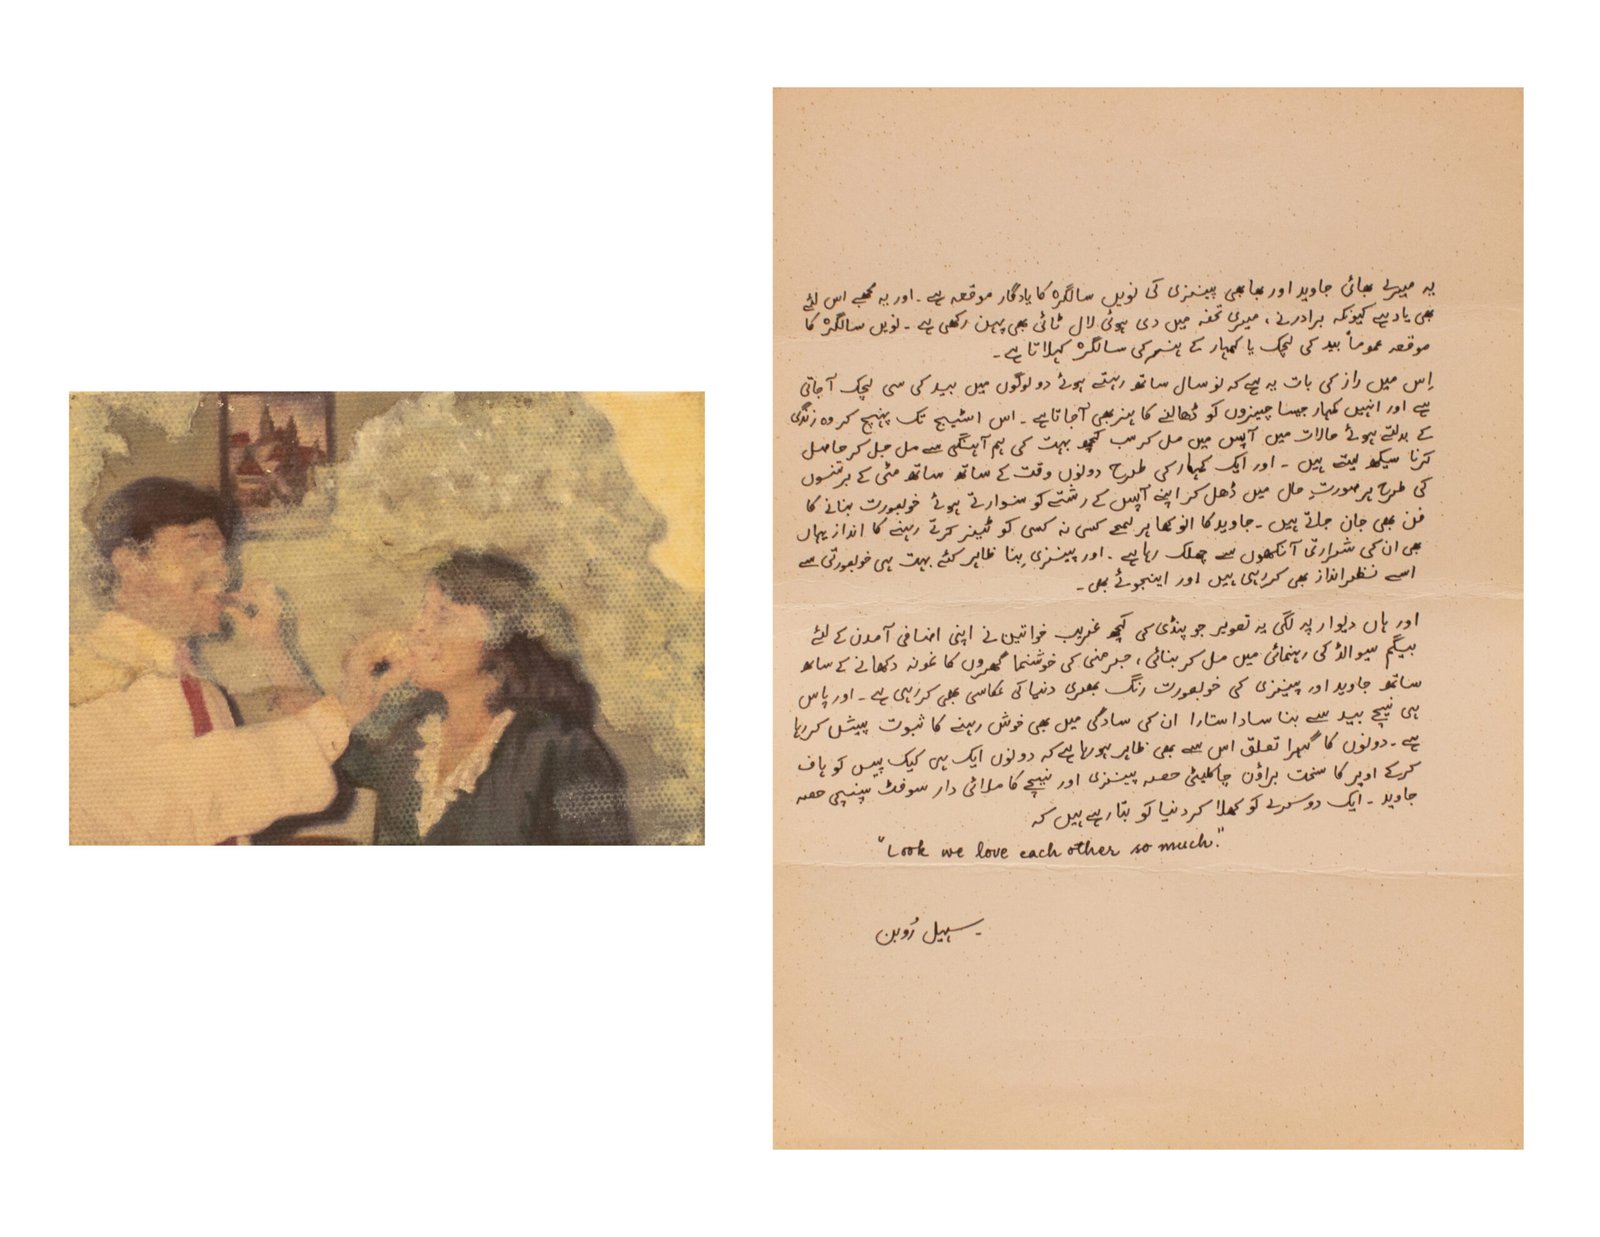 یہ میرے بھائی جاوید اور بھابھی پینزی کی نویں سالگرہ کا یادگار موقعہ ہے ۔ اور یہ مجھے اس لئے
بھی یاد ہے کیونکہ برادر نے، میری تحفہ میں دی ہوئی لال ٹائی بھی پہن رکھی ہے ۔ نویں سالگرہ کا
موقعہ عموماً بید کی لچک یا کمہار کے ہنر کی سالگرہ کہلاتا ہے ۔
اِس میں راز کی بات یہ ہے کہ نو سال ساتھ رہتے ہوئے دو لوگوں میں بید کی سی لچک آ جاتی
ہے اور انہیں کمہار جیسا چیزوں کو ڈھالنے کا ہنر بھی آ جاتا ہے ۔ اس اسٹیج تک پہنچ کر وہ زندگی
کے بدلتے ہوئے حالات میں آپس میں مل کر سب کچھ بہت کی ہم آہنگی سے مل جل کر حاصل
کرنا سیکھ لیتے ہیں ۔ اور ایک کمہار کی طرح دونوں وقت کے ساتھ ساتھ مٹی کے برتنوں
کی طرح ہر صورتِ حال میں ڈھل کر اپنے آپس کے رشتے کو سنوارتے ہوئے خوبصورت بنانے کا
فن بھی جان جاتے ہیں ۔ جاوید کا انوکھا ہر لمحے کسی نہ کسی کو ٹیز کرتے رہنے کا انداز یہاں
بھی ان کی شرارتی آنکھوں سے جھلک رہا ہے ۔ اور پینزی بِنا ظاہر کئے بہت ہی خوبصورتی سے
اسے نظر انداز بھی کر رہی ہیں اور اینجوئے بھی ۔
اور ہاں دیوار پہ لگی یہ تصویر جو پنڈی کی کچھ غریب خواتین نے اپنی اضافی آمدن کے لئے
بیگم سیوالڈ کی رہنمائی میں مل کر بنائی، جرمنی کی خوشنما گھروں کا نمونہ دکھانے کے ساتھ
ساتھ جاوید اور پینزی کی خوبصورت رنگ بھری دنیا کی عکاسی بھی کر رہی ہے ۔ اور پاس
ہی نیچے بید سے بنا سادا ستارا ان کی سادگی میں بھی خوش رہنے کا ثبوت پیش کر رہا
ہے ۔ دونوں کا گہرا تعلق اس سے بھی ظاہر ہو رہا ہے کہ دونوں ایک ہی کیک پیس کو ہاف
کر کے اوپر کا سخت براؤن چاکلیٹی حصہ پینزی اور نیچے کا ملائی دار سوفٹ سپنجی حصہ
جاوید ۔ ایک دوسرے کو کھلا کر دنیا کو بتا رہے ہیں کہ
"Look we love each other so much."
سہیل رُوبن